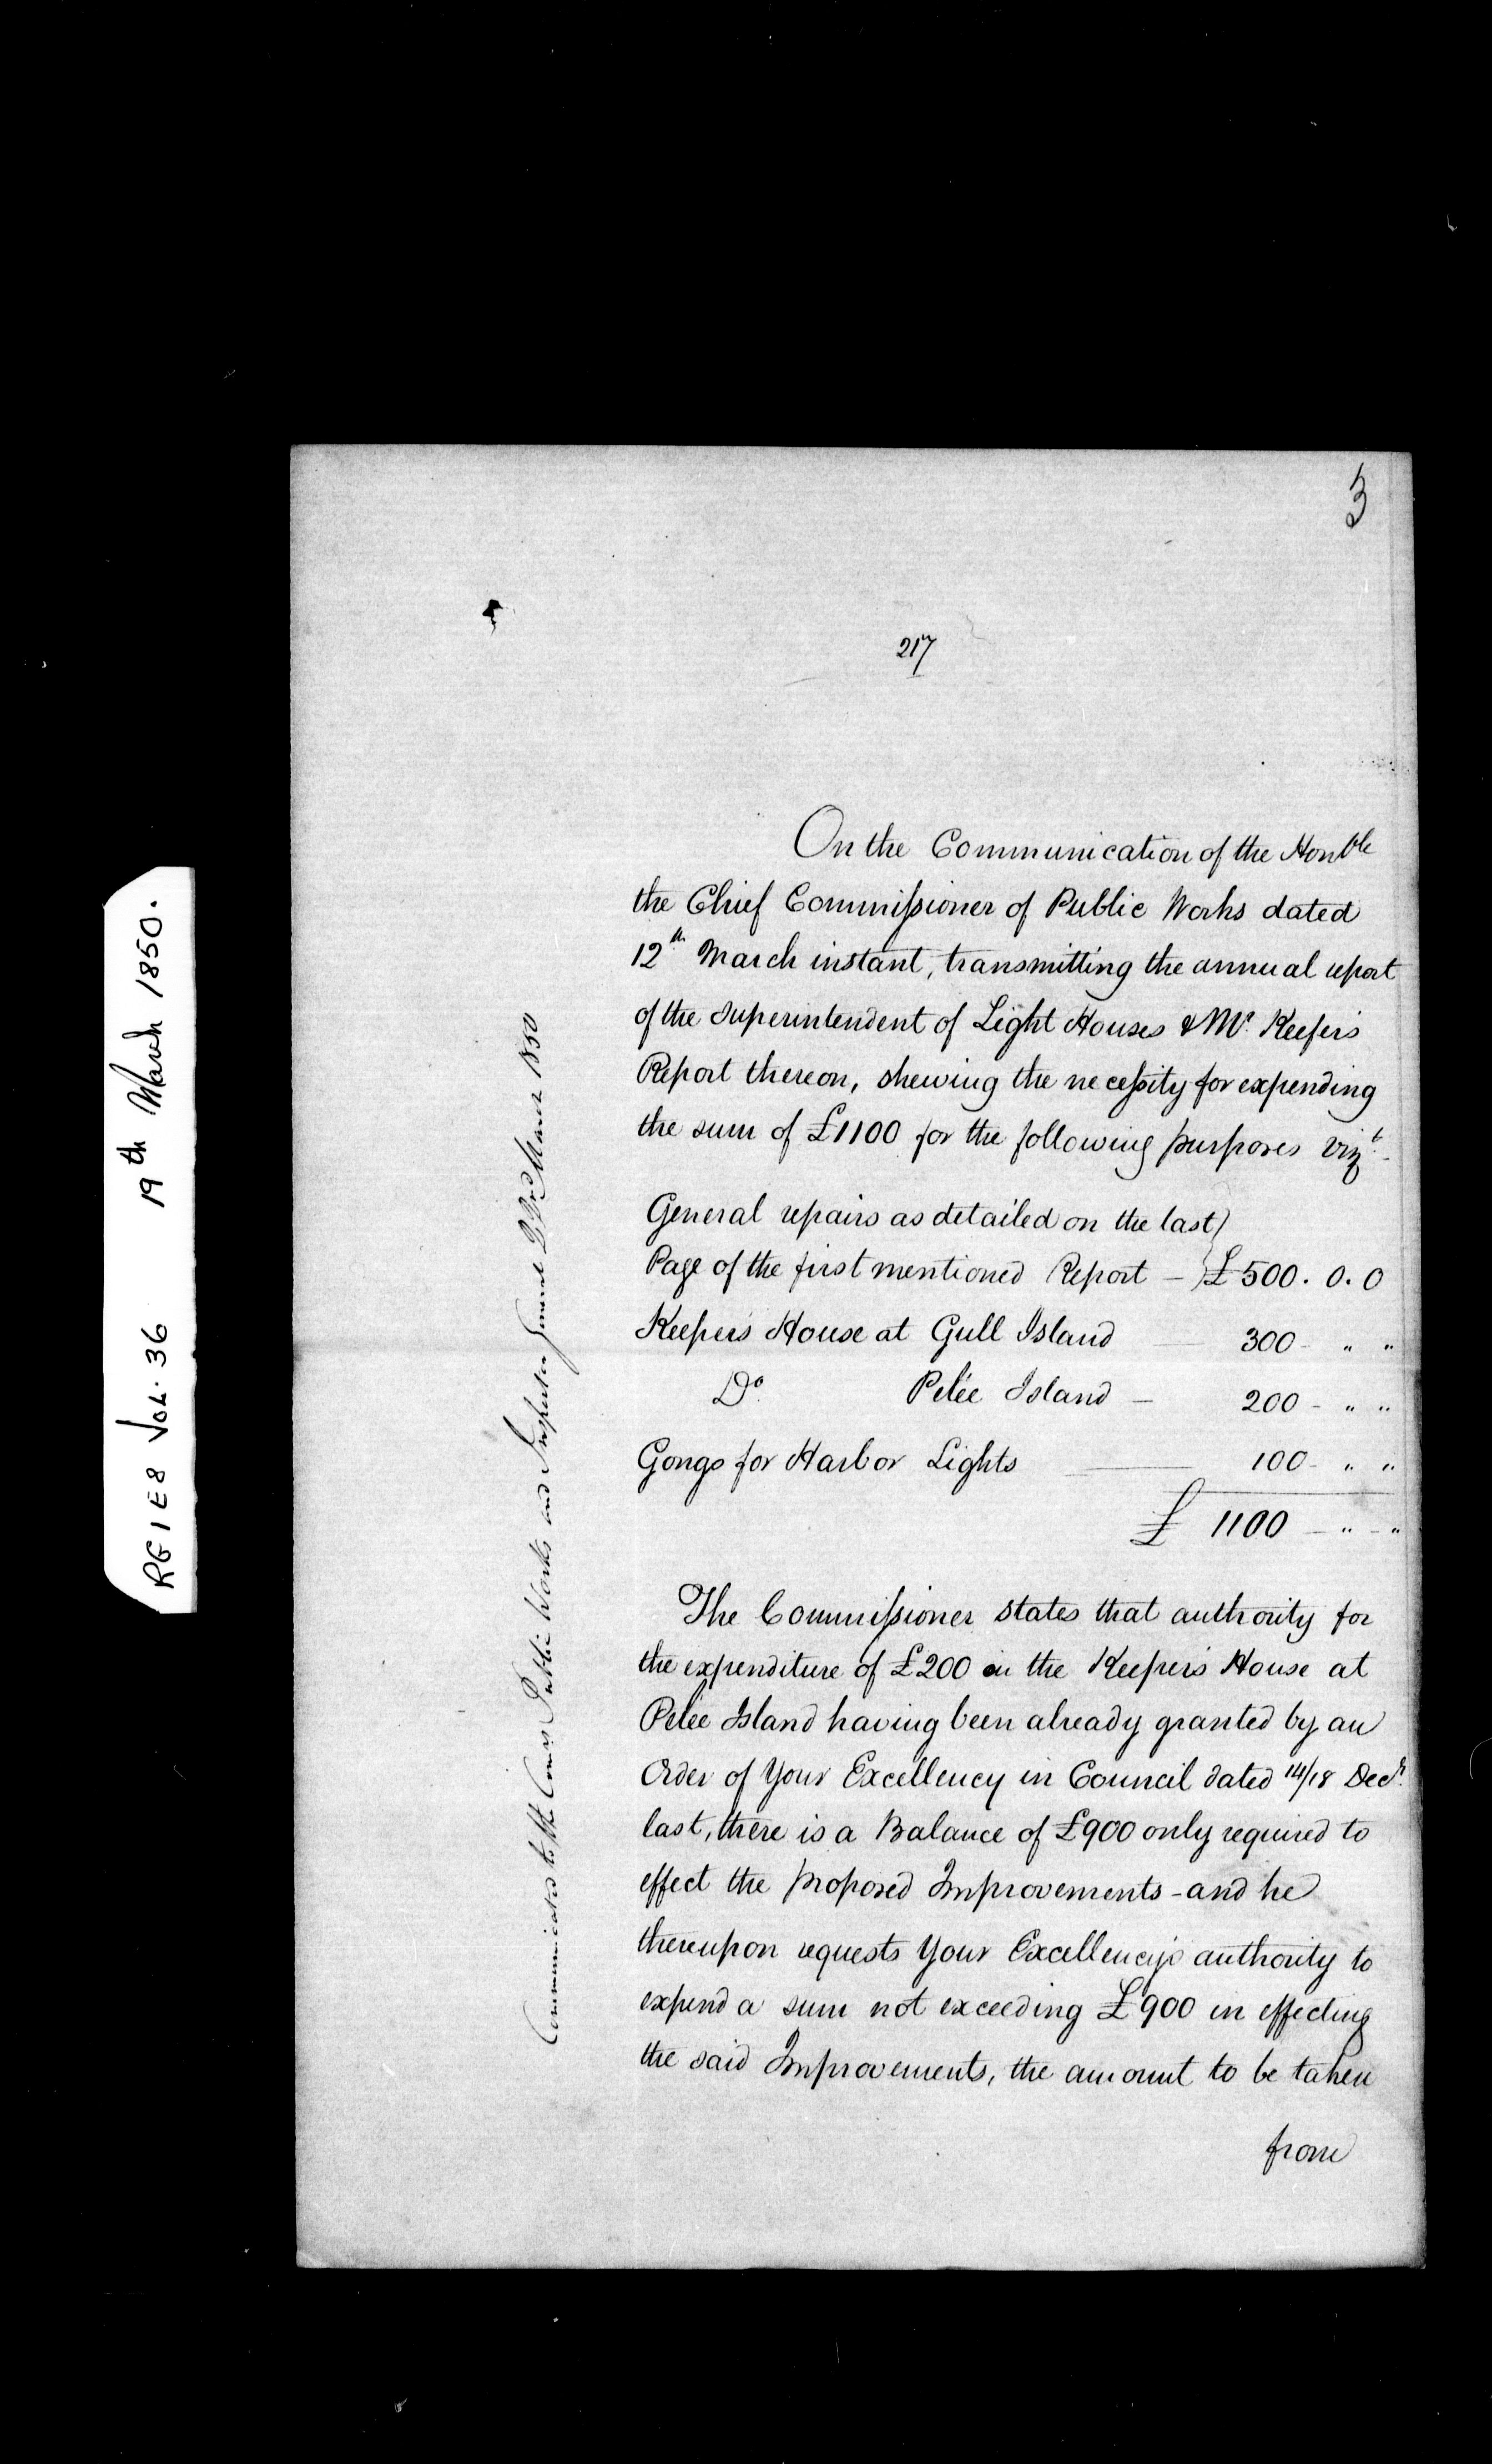 3
217
On the Communication of the Honble
the Chief Commissioner of Public Works dated
12th March instant, transmitting the annual report
of the Superintendent of Light Houses & Mr. Keefer's
Report thereon, shewing the necessity for expending
the sum of £1100 for the following purposes vizt.-
General repairs as detailed on the last}
Page of the first mentioned Report - } £500. 0. 0
Keepers House at Gull Island — 300 - " "
Do. Pelée Island — 200 - " "
Gongs for Harbor Lights — 100 - " "
£ 1100 - " - "
The Commissioner states that authority for
the expenditure of £200 on the Keeper's House at
Pelée Island having been already granted by an
Order of Your Excellency in Council dated 14/18 Decr.
last, there is a Balance of £900 only required to
effect the proposed Improvements - and he
thereupon requests Your Excellency's authority to
expend a sum not exceeding £900 in effecting
the said Improvements, the amount to be taken
from
Communicated to the Comrs Public Works and Inspector General 22nd March 1850
RG 1 E 8 Vol. 36 19th March 1850.